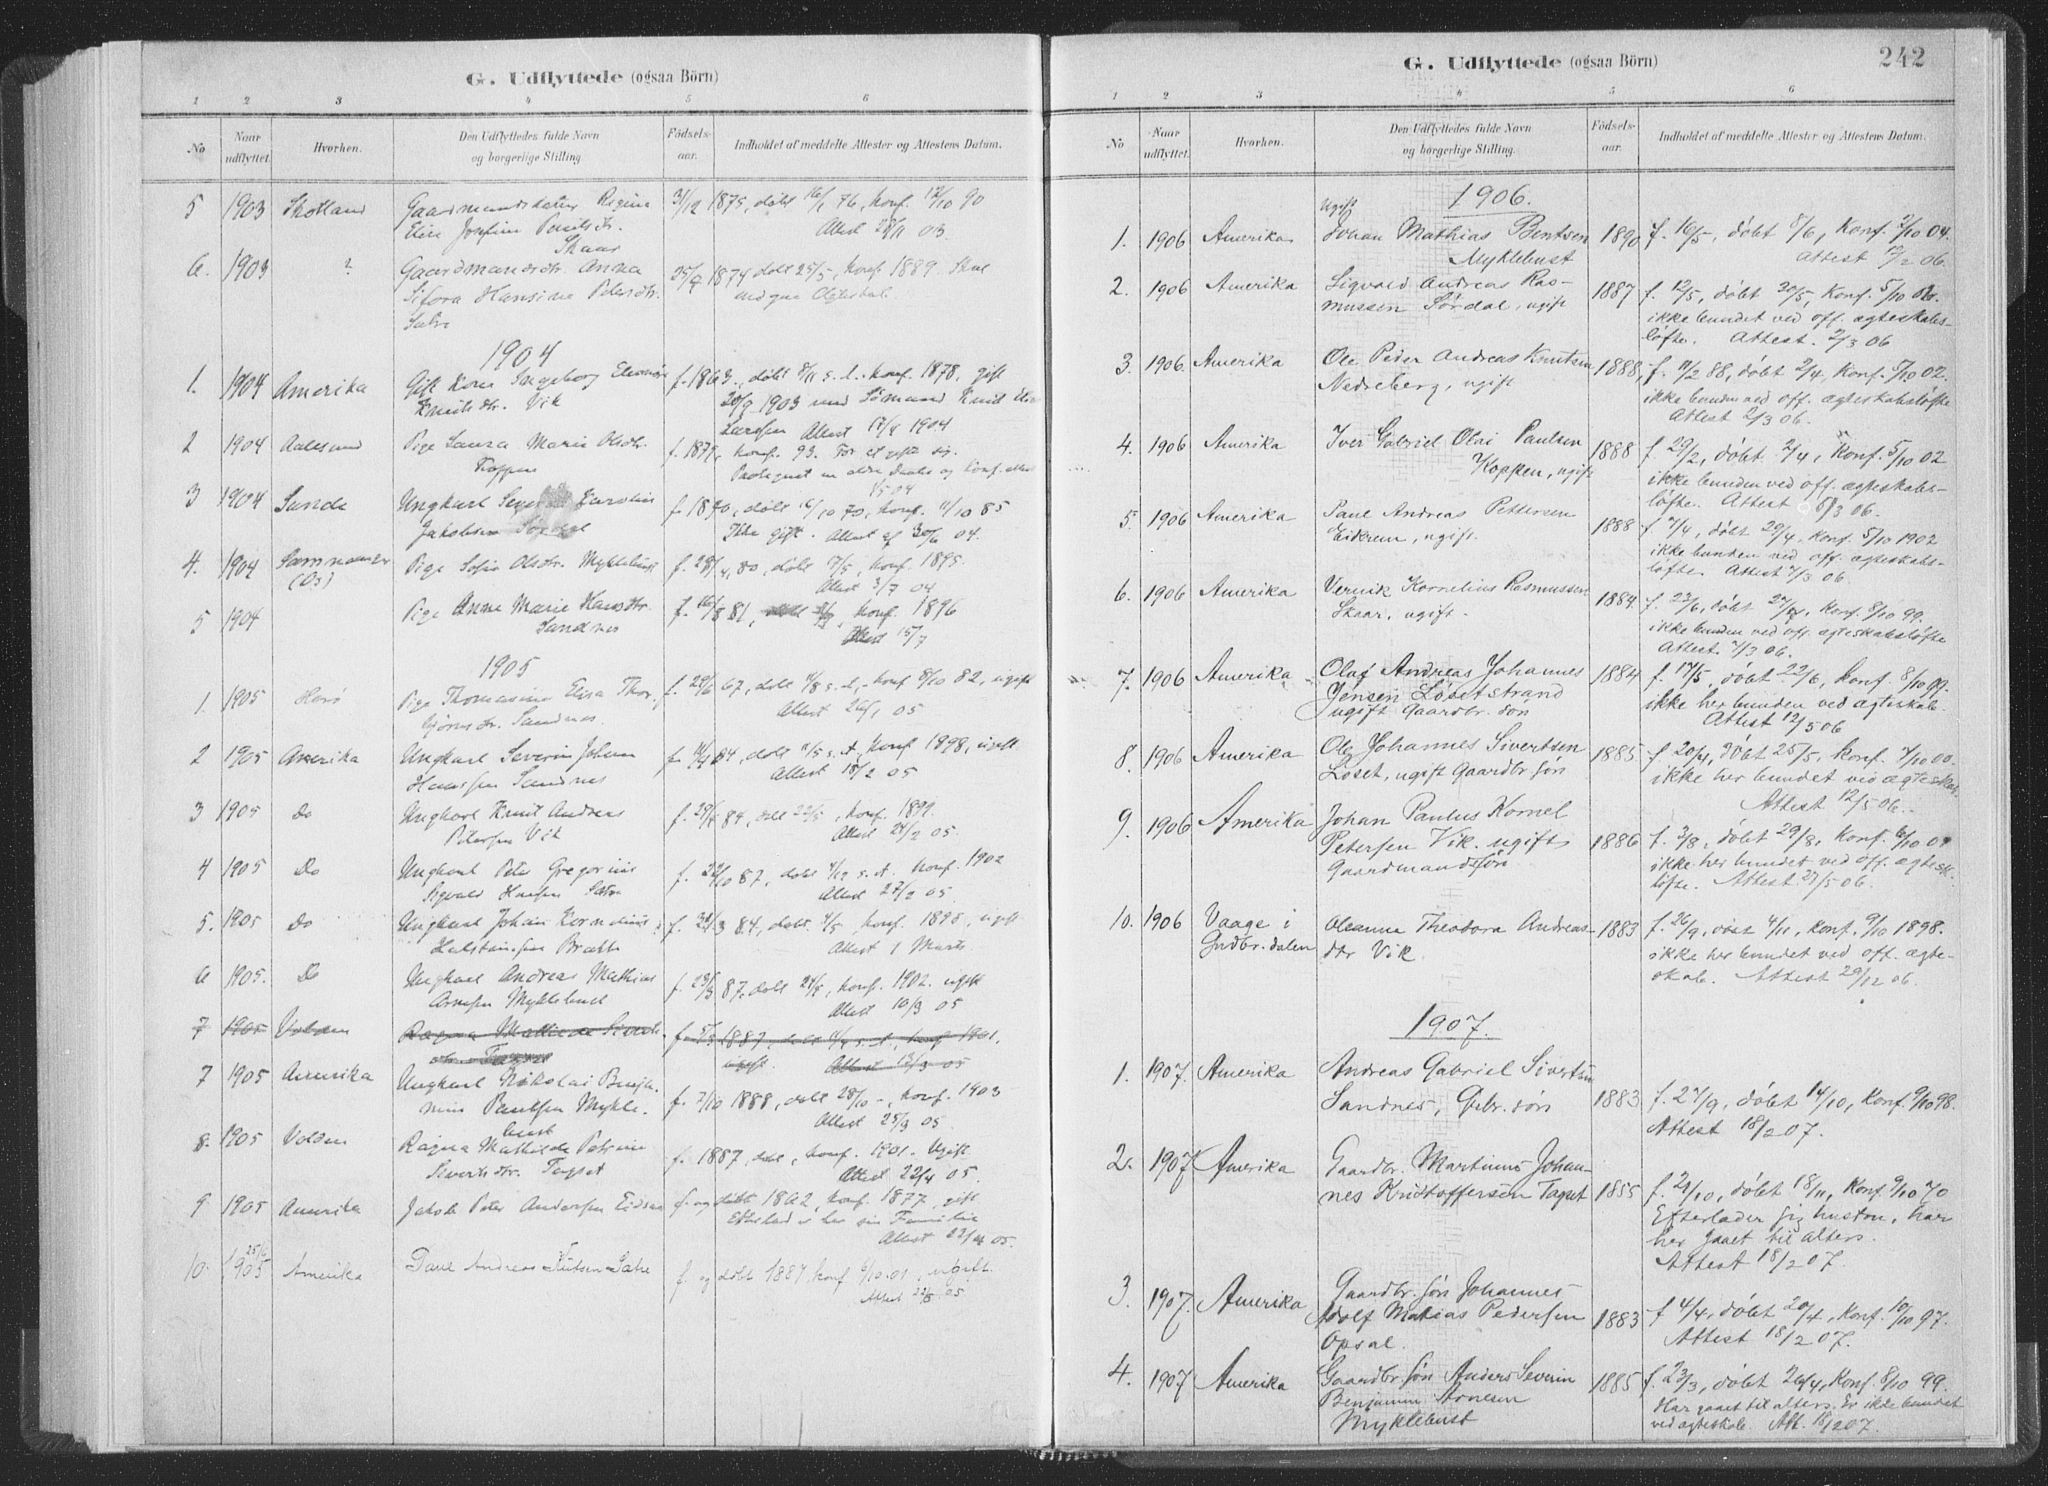 G. Udflyttede (ogsaa Börn)
1 2 3 4 5 6
No
Naar udflyttet.
Hvorhen.
Den Udflyttedes fulde Navn
og borgerlige Stilling.
Födsels-
aar.
Indholdet af meddelte Attester og Attestens Datum.
5 1903 Skotland Gaardmandsdatter Regina 31/12 1875, döbt 16/1 76, konf. 12/10 90
Elise Josefine
Skaar Attest 03.
6. 1903 ? Gaardmandsdtr. Anna 1874 döbt 25/5, konf. 1889.
Sifora Hansine Petersdtr.
Sætre
1904
1. 1904 Amerika Gift Kona Ingeborg f. 1863, döbt s. å. konf. 1878. gift
Knutsdtr. Vik 1903 med Sömand Knud
Larsen Attest 17/4 1904
2 1904 Aalesund Pige Laura Marie Olsdtr. konf. 93. For at gifte sig.
Koppen
3 1904 Sande Ungkarl f. 1870, döbt 16/10 70, konf. 11/10 85
Jakobsen Sørdal Ikke gift. Attest af 30/6 04.
4. 1904 (Os) Pige Sofie Olsdtr. Myklebust f. 80, döbt 17/5, konf. 1895.
Attest 3/7 04
5 1904 Pige Anne Marie Hansdtr. 81, konf. 1896
Sandnes Attest 15/7
1905
1. 1905 Herö Pige Thomasine Elisa Thor- 67, döbt s. å, konf 8/10 82, ugift
björnsdtr. Sandnes. Attest 26/1 05
2 1905 Amerika Ungkarl Severin Johan 84, döbt 11/5 s. å, konf 1898, ugift.
Hansen Sandnes Attest 18/2 05
3 1905 Do Ungkarl Knut Andreas 84, döbt 22/5, konf. 1899.
Petersen Vik Attest 24/2 05.
4 1905 Do Ungkarl Peter Gregorius f. 87, döbt s. å. konf. 1902
Sigvald Hansen Sætre Attest 27/2 05.
5. 1905 Do Ungkarl Johan Kornelius 84, döbt konf. 1898, ugift
Bratte Attest 1 Marts
6 1905. Do Ungkarl Andreas Mathias f. 23/3 87. döbt konf. 1902. ugift
Arnesen Myklebust Attest 10/3 05
7 1905 Volden Ragna Mathilde Siverts- f. 1887, döbt s. å., konf 1901,
dtr. Tagset ugift. Attest 13/3 05
7 1905 Amerika Ungkarl Nikolai Benja-
mins Paulsen Mykle- f. 7/10 1888, döbt 28/10 -, konf. 1903
bust Attest 25/3 05
8. 1905 Volden Ragna Mathilde Petrine f. 1887, döbt, konf. 1901. Ugift
Sivertsdtr. Tagset Attest 22/4 05.
9 1905 Amerika Jakob Peter Andersen f. og döbt 1862, konf. 1877, gift
Efterlader her sin Familie
Attest 22/4 05.
10. 25/6 1905 Amerika Paul Andreas Sætre f. og döbt 1887, konf 01, ugift.
Attest 05
242
G. Udflyttede (ogsaa Börn)
1 2 3 4 5 6
No
Naar udflyttet.
Hvorhen.
Den Udflyttedes fulde Navn
og borgerlige Stilling.
Födsels-
aar.
Indholdet af meddelte Attester og Attestens Datum.
1906.
ugift
1. 1906 Amerika Johan Mathias Bentsen 1890 f. 16/5, döbt 8/6, Konf. 2/10 04.
Myklebust Attest 06.
2. 1906 Amerika Sigvald Andreas Ras- 1887 f. 12/5, döbt 30/5, Konf. 5/10 02.
mussen Sördal, ugift ikke bundet ved off. ægteskabs-
löfte. Attest. 2/3 06
3. 1906. Amerika Ole Peder Andreas Knutsen 1888, f. 11/2 88, döbt 2/4, Konf. 5/10 02.
Nedreberg, ugift ikke bunden ved off. ægteskabslöfte
Attest 2/3 06.
4. 1906 Amerika Iver Gabriel Olai Paulsen 1888 f. 29/2, döbt 2/4, Konf. 5/10 02
Koppen, ugift ikke bunden ved off. ægteskabs-
löfte. Attest 5/3 06.
5. 1906 Amerika Paul Andreas Pettersen 1888 f. 7/4, döbt 29/4, Konf. 5/10 1902
Eidkrem, ugift. ikke bunden ved off. ægteskabs-
löfte. Attest 7/3 06.
6. 1906 Amerika Vernik Kornelius Rasmussen 1884. f. 23/6, döbt Konf. 8/10 99.
Skaar, ugift. ikke bunden ved off. ægteskabslöfte
Attest. 7/3 06.
7. 1906 Amerika Olaf Andreas Johannes 1884 f. 17/5, döbt 22/6, Konf. 8/10 99.
Jensen Løsetstrand ikke her bunden ved ægteskab.
ugift Gaardbr. sön Attest 12/5 06
8. 1906 Amerika Ole Johannes Sivertsen 1885. f. 20/4, döbt 25/5, Konf. 7/10 00.
Löset, ugift Gaardbr. sön ikke her bundet ved ægteskab.
Attest 12/5 06.
9. 1906 Amerika Johan Paulus Kornel
Petersen Vik. ugift 1886 f. 3/8, döbt 29/8, Konf. 6/10 01
Gaardmandssön ikke her bundet ved off. ægtesk.
löfte. Attest 23/5 06.
10. 1906 Vaage i Oleanna Theodora Andreas- 1883 f. 26/9, döbt 4/11, Konf. 9/10 1898.
Gudbr. dalen dtr Vik. ikke her bundet ved off. ægte-
skab. Attest 29/12 06.
1907.
1. 1907. Amerika Andreas Gabriel Sivertsen
Sandnes, Gbr. sön 1883 f. 27/9, döbt 14/10, Konf. 9/10 98.
Attest 18/2 07.
2. 1907 Amerika Gaardbr. Martinus Johan-
nes Kristoffersen Tagset 1855 f. 21/10, döbt 18/11, Konf. 9/10 70
Efterlader sig hustru, har
her gaaet til alters.
Attest 18/2 07.
3. 1907. Amerika Gaardbr. sön Johannes
Adolf Matias Pedersen 1883 f. 4/4, döbt 20/4, Konf. 10/10 97.
Opsal. Attest 18/2 07.
4. 1907 Amerika Gaardbr. sön Anders Severin 1885 f. 23/3, döbt 26/4, Konf. 8/10 99.
Benjamin Arnesen Har gaaet til alters. Er ikke bundet
Myklebust ved ægteskab. Att. 18/2 07.